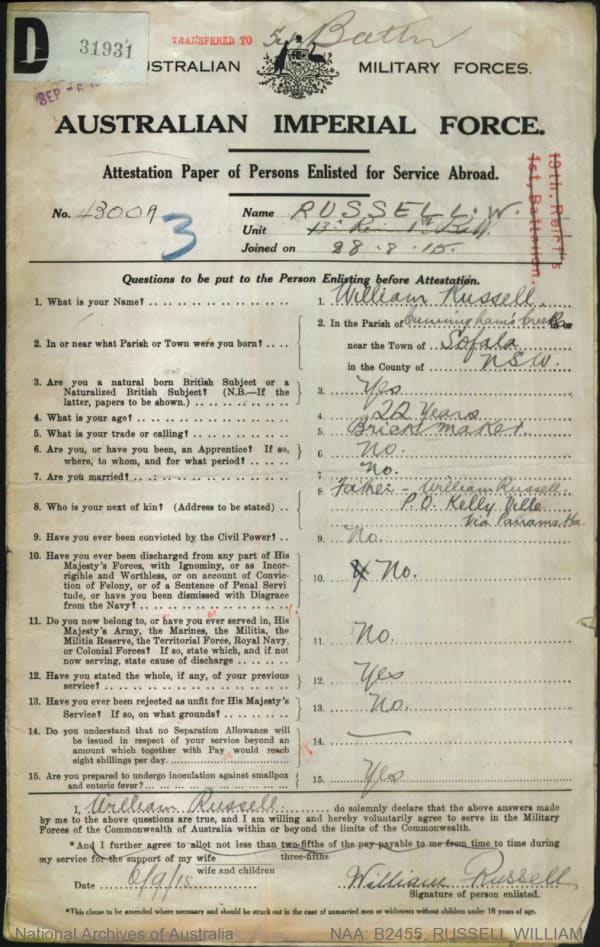 D 31931
TRANSFERED TO Battn
SEP
AUSTRALIAN MILITARY FORCES.
AUSTRALIAN IMPERIAL FORCE.
Attestation Paper of Persons Enlisted for Service Abroad.
19th. Reinf's
1st. Battalion.
No. 3 Name RUSSELL. W.
Unit 13th Rein 1st Batt.
Joined on 28.8.15.
Questions to be put to the Person Enlisting before Attestation.
1. What is your Name? 1. William Russell.
2. In or near what Parish or Town were you born? 2. In the Parish of Cunningham's Creek
near the Town of Sofala
in the County of NSW.
3. Are you a natural born British Subject or a
Naturalized British Subject? (N.B.—If the
latter, papers to be shown.) 3. Yes
4. What is your age? 4. 22 Years
5. What is your trade or calling? 5. Brick maker.
6. Are you, or have you been, an Apprentice? If so,
where, to whom, and for what period? 6 No.
7. Are you married? 7 No.
8. Who is your next of kin? (Address to be stated) 8 Father - William Russell
P.O. Kelly Ville
Via Parramatta
9. Have you ever been convicted by the Civil Power? 9. No.
10. Have you ever been discharged from any part of His
Majesty's Forces, with Ignominy, or as Incor-
rigible and Worthless, or on account of Convic-
tion of Felony, or of a Sentence of Penal Servi
tude, or have you been dismissed with Disgrace
from the Navy? 10. No.
11. Do you now belong to, or have you ever served in, His
Majesty's Army, the Marines, the Militia, the
Militia Reserve, the Territorial Force, Royal Navy,
or Colonial Forces? If so, state which, and if not
now serving, state cause of discharge 11. No.
12. Have you stated the whole, if any, of your previous
service? 12. Yes
13. Have you ever been rejected as unfit for His Majesty's
Service? If so, on what grounds? 13. No.
14. Do you understand that no Separation Allowance will
be issued in respect of your service beyond an
amount which together with Pay would reach
eight shillings per day. 14. —
15. Are you prepared to undergo inoculation against smallpox
and enteric fever? 15. Yes
I, William Russell do solemnly declare that the above answers made
by me to the above questions are true, and I am willing and hereby voluntarily agree to serve in the Military
Forces of the Commonwealth of Australia within or beyond the limits of the Commonwealth.
*And I further agree to allot not less than two-fifths of the pay payable to me from time to time during
three-fifths
my service for the support of my wife
wife and children
Date 6/9/15 William Russell
Signature of person enlisted.
*This clause to be amended where necessary and should be struck out in the case of unmarried men or widowers without children under 18 years of age.
National Archives of Australia NAA: B2455, RUSSELL WILLIAM